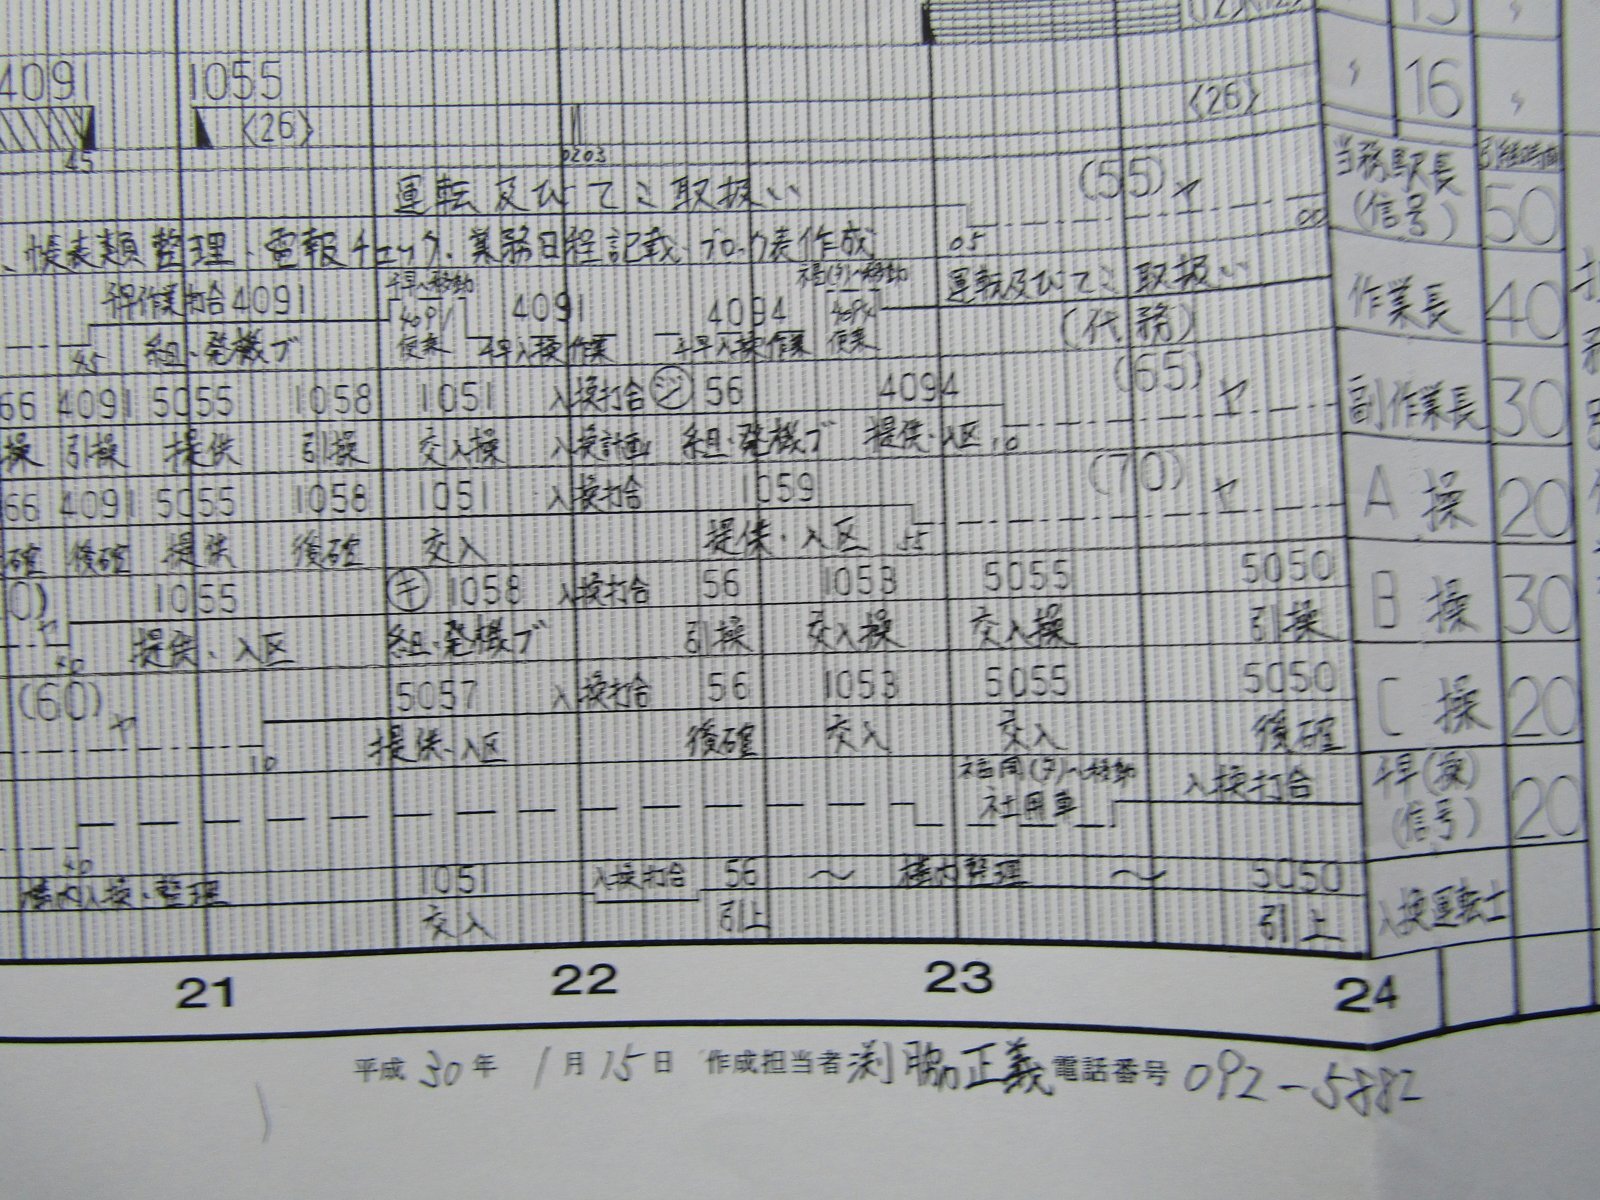 4091 1055
〈26〉 〈26〉 〃 16 〃
45 0203
運転及びてこ取扱い (55) ヤ 当務駅長 (信号) 引継時間 50
05 00
、帳表類整理・電報チェック・業務日程記載・ブロック表作成
作業打合 4091 4091 4094 運転及びてこ取扱い (代務) 作業長 40
45 組・発機ブ 入換作業 入換作業
66 4091 5055 1058 1051 入換打合 56 4094 (65) ヤ 副作業長 30
操 引操 提供 引操 交入操 入換計画 組・発機ブ 提供・入区 10
66 4091 5055 1058 1051 入換打合 1059 (70) ヤ A 操 20
確 後確 提供 後確 交入 提供・入区 55
0) ヤ 1055 キ 1058 入換打合 56 1053 5055 5050 B 操 30
提供・入区 組・発機ブ 引操 交入操 交入操 引操
(60) ヤ 5057 入換打合 56 1053 5055 5050 C 操 20
10 提供・入区 後確 交入 交入 後確
社用車 入換打合 (信号) 20
構内入換・整理 1051 入換打合 56 〜 構内整理 〜 5050 入換運転士
交入 引上 引上
21 22 23 24
平成 30 年 1 月 15 日 作成担当者 渕脇正義 電話番号 092-5882